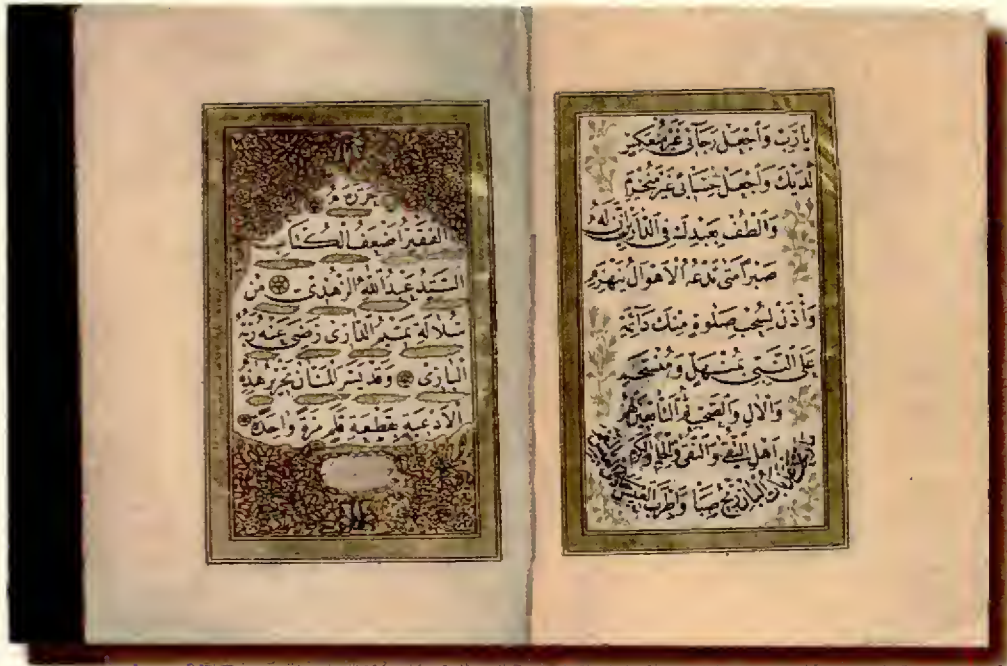 يَا رَبِّ وَاجْعَلْ رَجَائِي غَيْرَ مُنْعَكِسٍ
لَدَيْكَ وَاجْعَلْ حِسَابِي غَيْرَ مُنْخَرِمٍ
وَالْطُفْ بِعَبْدِكَ فِي الدَّارَيْنِ إِنَّ لَهُ
صَبْرًا مَتَى تَدْعُهُ الْأَهْوَالُ يَنْهَزِمِ
وَأْذَنْ لِسُحْبِ صَلٰوةٍ مِنْكَ دَائِمَةٍ
عَلَى النَّبِيِّ بِمُنْهَلٍّ وَمُنْسَجِمِ
وَالْآلِ وَالصَّحْبِ ثُمَّ التَّابِعِينَ لَهُمْ
أَهْلِ التُّقَى وَالنَّقَى وَالْحِلْمِ وَالْكَرَمِ
مَا رَنَّحَتْ عَذَبَاتِ الْبَانِ رِيحُ صَبًا وَأَطْرَبَ الْعِيسَ
حَرَّرَهُ
الْفَقِيرُ أَضْعَفُ الْكُتَّابِ
السَّيِّدُ عَبْدُ اللهِ الزُّهْدِي مِنْ
سُلَالَةِ تَمِيمِ الدَّارِي رَضِيَ عَنْهُ رَبُّهُ
الْبَارِي وَقَدْ يَسَّرَ الْمَنَّانُ تَحْرِيرَ هٰذِهِ
الْأَدْعِيَةِ بِقَطْعَةِ قَلَمٍ مَرَّةً وَاحِدَةً